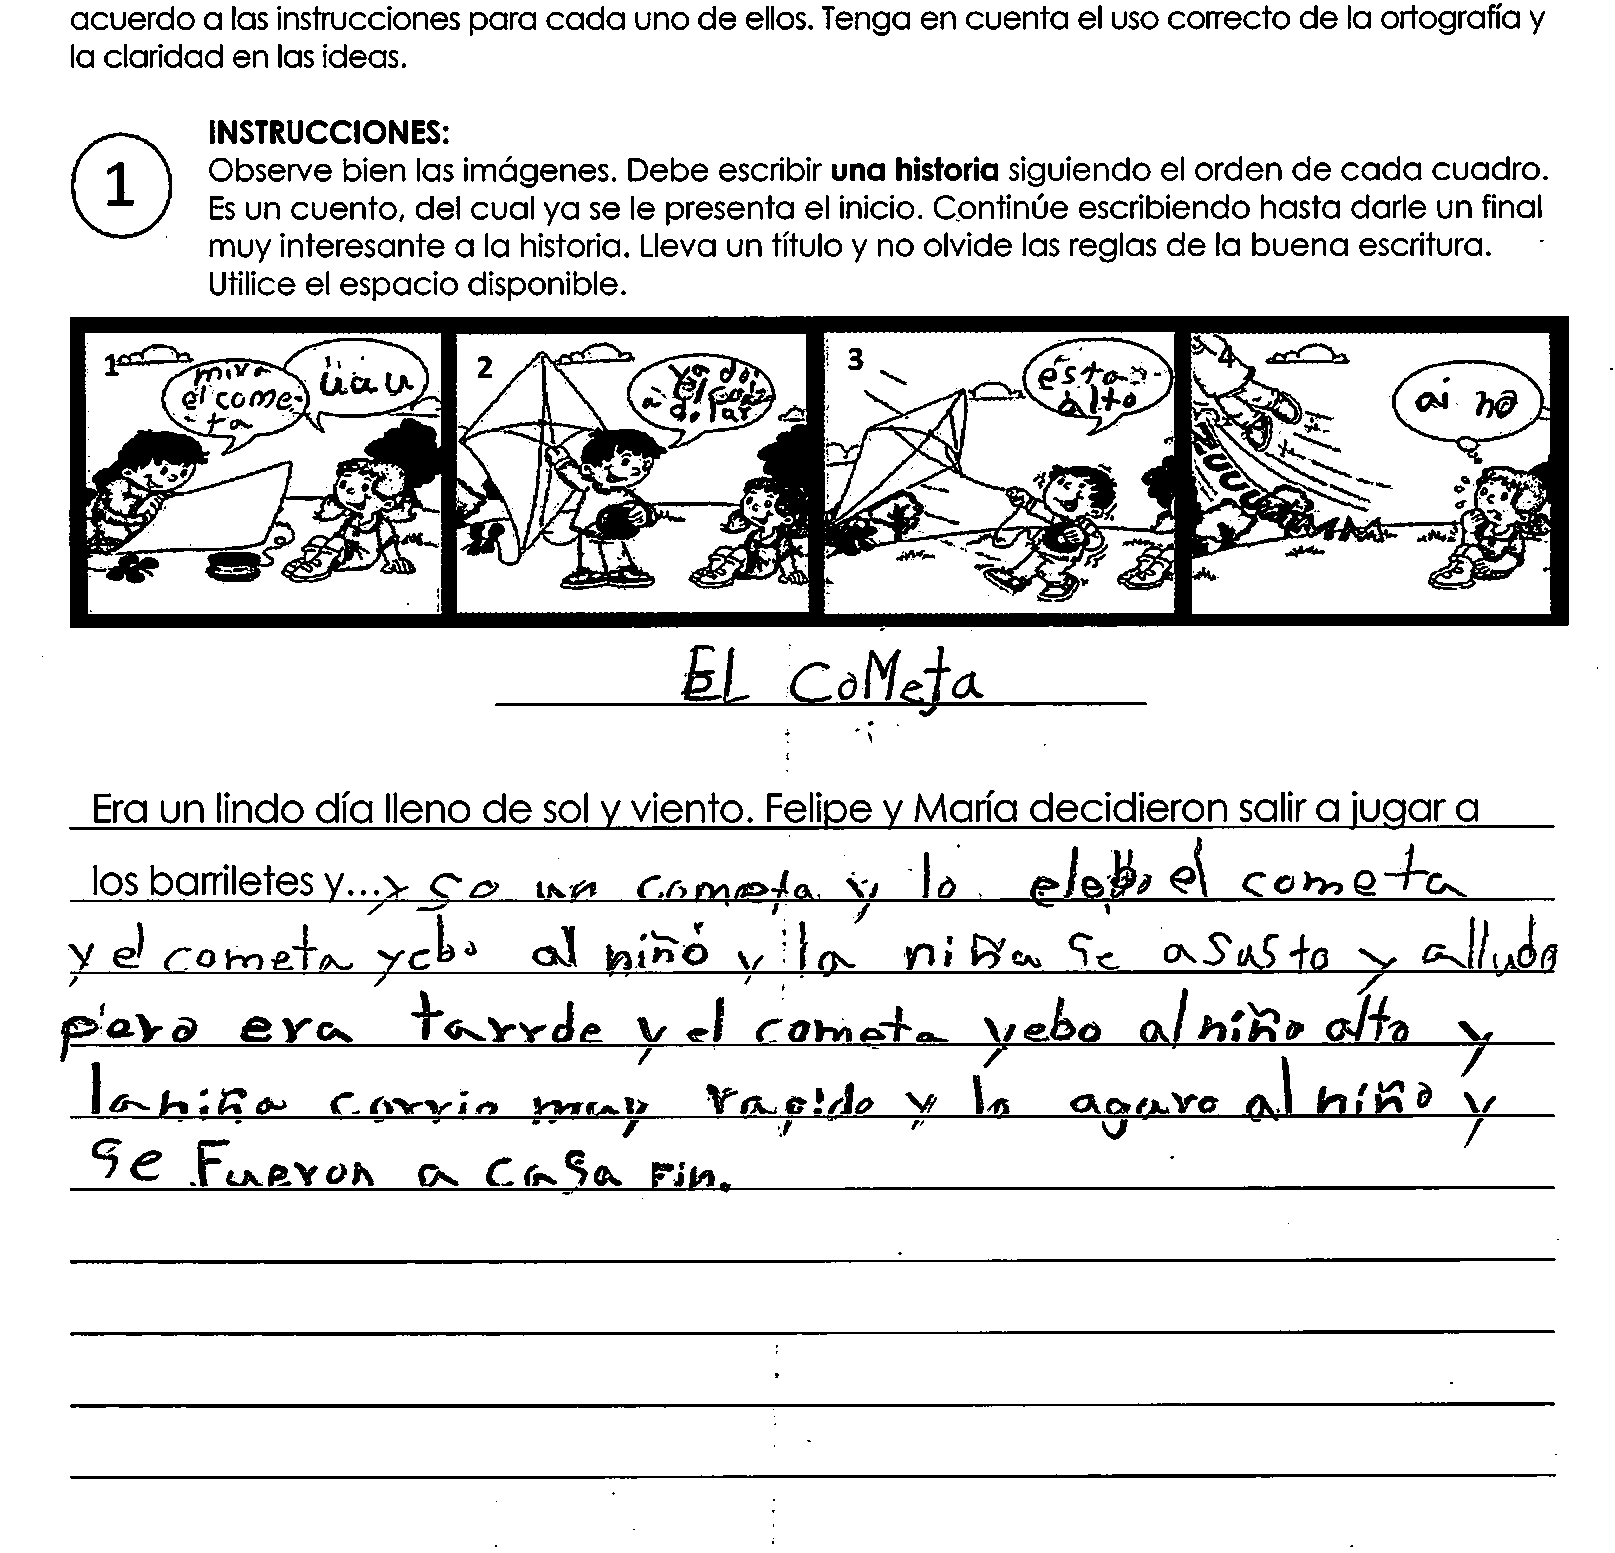 acuerdo a las instrucciones para cada uno de ellos. Tenga en cuenta el uso correcto de la ortografía y
la claridad en las ideas.
1
INSTRUCCIONES:
Observe bien las imágenes. Debe escribir una historia siguiendo el orden de cada cuadro.
Es un cuento, del cual ya se le presenta el inicio. Continúe escribiendo hasta darle un final
muy interesante a la historia. Lleva un título y no olvide las reglas de la buena escritura.
Utilice el espacio disponible.
1
mira
el come-
-ta
üau
2
ya
3
esta
alto
4
ai no
ZUUUU
EL CoMeta
Era un lindo día lleno de sol y viento. Felipe y María decidieron salir a jugar a
los barriletes y... y so un cometa y lo elebo el cometa
y el cometa yebo al niño y la niña se asusto y alludo
pero era tarrde y el cometa yebo al niño alto y
la niña corrio muy rapido y lo agaro al niño y
se Fueron a casa Fin.